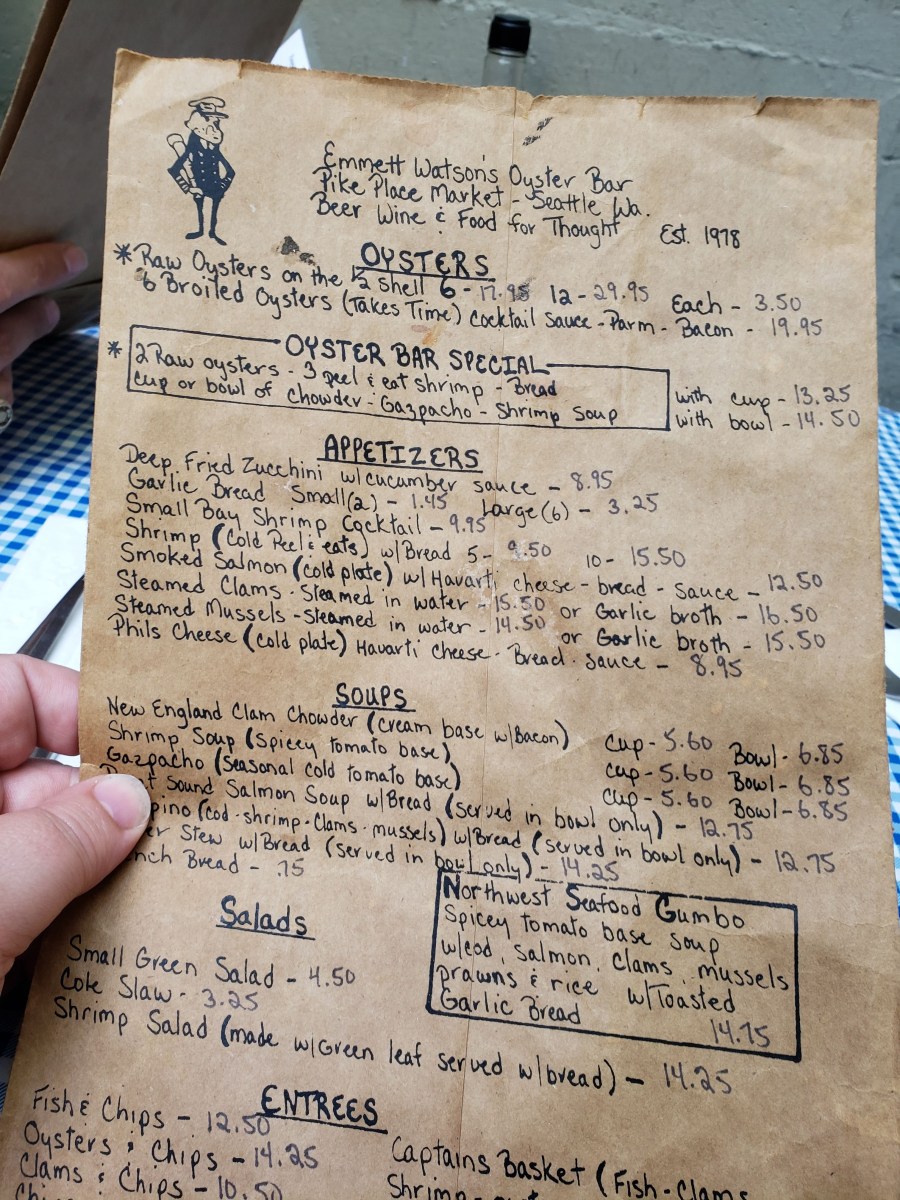 Emmett Watson's Oyster Bar
Pike Place Market - Seattle Wa.
Beer Wine & Food for Thought Est. 1978
OYSTERS
* Raw Oysters on the ½ shell 6 - 17.95 12 - 29.95 Each - 3.50
6 Broiled Oysters (Takes Time) cocktail sauce - Parm - Bacon - 19.95
* OYSTER BAR SPECIAL
2 Raw oysters - 3 peel & eat shrimp - Bread
cup or bowl of chowder - Gazpacho - Shrimp Soup
with cup - 13.25
with bowl - 14.50
APPETIZERS
Deep Fried Zucchini w/cucumber sauce - 8.95
Garlic Bread Small(2) - 1.45 Large(6) - 3.25
Small Bay Shrimp Cocktail - 9.95
Shrimp (Cold Peel & eats) w/Bread 5 - 9.50 10 - 15.50
Smoked Salmon (cold plate) w/Havarti cheese - bread - sauce - 12.50
Steamed Clams - Steamed in water - 15.50 or Garlic broth - 16.50
Steamed Mussels - steamed in water - 14.50 or Garlic broth - 15.50
Phils Cheese (cold plate) Havarti cheese - Bread - sauce - 8.95
SOUPS
New England Clam Chowder (cream base w/Bacon) Cup - 5.60 Bowl - 6.85
Shrimp Soup (spicey tomato base) cup - 5.60 Bowl - 6.85
Gazpacho (seasonal cold tomato base) cup - 5.60 Bowl - 6.85
Sound Salmon Soup w/Bread (served in bowl only) - 12.75
pino (cod - shrimp - clams - mussels) w/Bread (served in bowl only) - 12.75
er Stew w/Bread (served in bowl only) - 14.25
nch Bread - .75
Northwest Seafood Gumbo
Spicey tomato base soup
w/cod, salmon, clams, mussels
prawns & rice w/Toasted
Garlic Bread 14.75
Salads
Small Green Salad - 4.50
Cole Slaw - 3.25
Shrimp Salad (made w/Green leaf served w/bread) - 14.25
ENTREES
Fish & Chips - 12.50
Oysters & Chips - 14.25
Clams & Chips - 10.50
Captains Basket (Fish - Clams
Shrimp